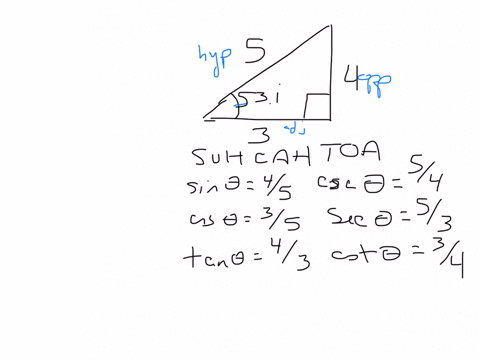 hyp 5
4 opp
53.1
3 adj
SOH CAH TOA
sin θ = 4/5 csc θ = 5/4
cos θ = 3/5 sec θ = 5/3
tan θ = 4/3 cot θ = 3/4